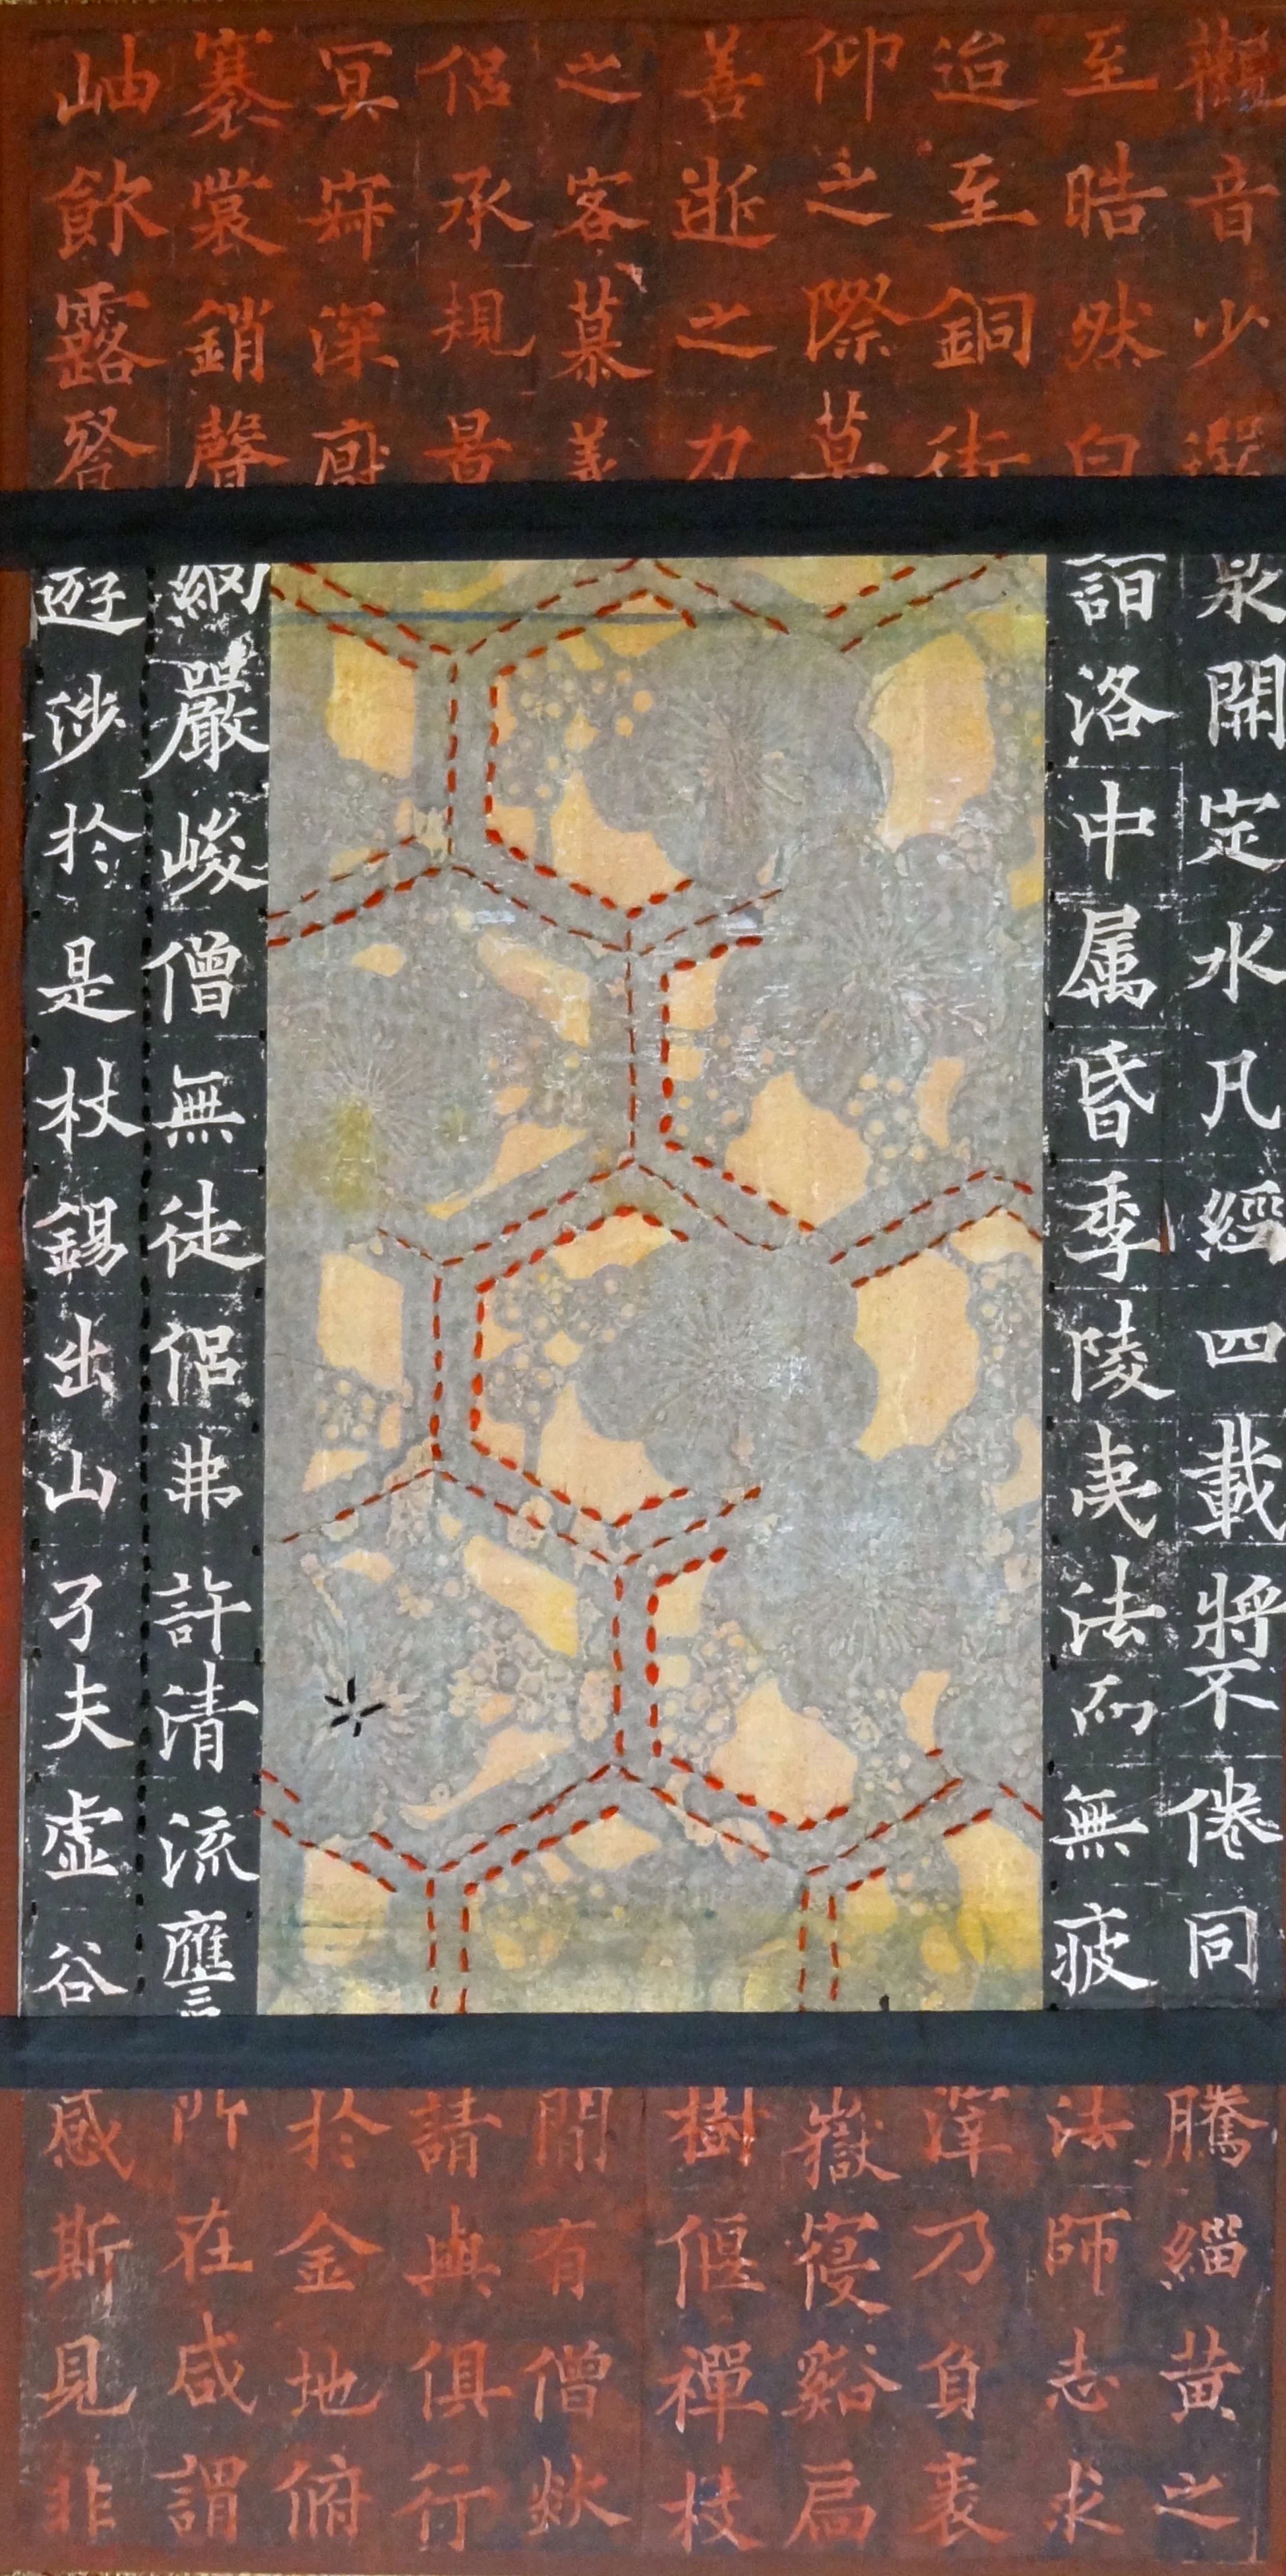 觀音少選
至晧然白
迨至銅街
仰之際莫
善逝之力
之客慕義
侶承規曷
冥寂深㕑
褰裳銷聲
岫飲露飡
泉開定水凡經四載將不倦同
詣洛中属昏季陵夷法而無疲
網嚴峻僧無徒侶弗許清流應
遊涉於是杖錫出山孑夫虛谷
騰緇黃之
法師志求
澤乃負袠
嶽寑谿扃
樹偃禪枝
閒有僧欻
請與俱行
於金地俯
所在咸謂
感斯見非